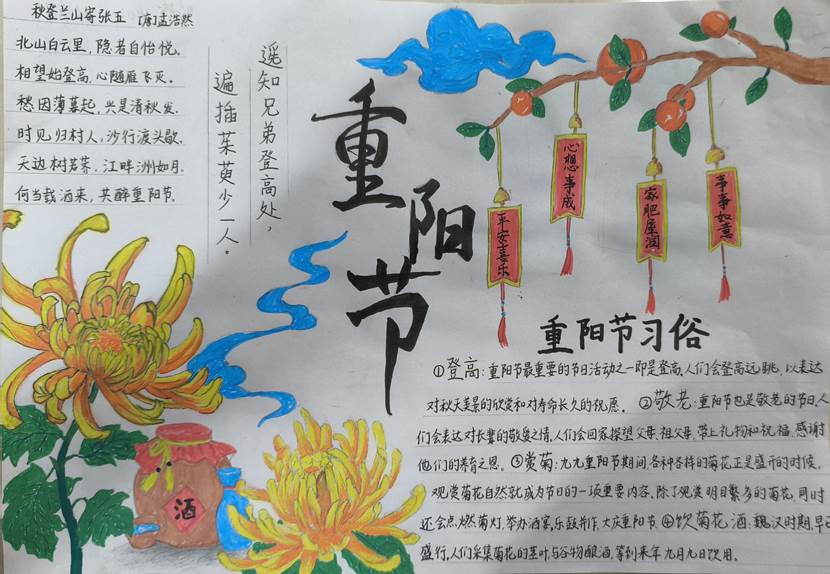 秋登兰山寄张五 [唐]孟浩然
北山白云里,隐者自怡悦,
相望始登高,心随雁飞灭。
愁因薄暮起,兴是清秋发.
时见归村人,沙行渡头歇.
天边树若荠,江畔洲如月.
何当载酒来,共醉重阳节.
遥知兄弟登高处,
遍插茱萸少一人。
重阳节
平安喜乐
心想事成
家肥屋润
事事如意
重阳节习俗
①登高:重阳节最重要的节日活动之一即是登高,人们会登高远眺,以表达
对秋天美景的欣赏和对寿命长久的祝愿。②敬老:重阳节也是敬老的节日,人
们会表达对长辈的敬爱之情,人们会回家探望父母,祖父母,带上礼物和祝福,感谢
他们的养育之恩。③赏菊:九九重阳节期间,各种各样的菊花正是盛开的时候,
观赏菊花自然就成为节日的一项重要内容,除了观赏明目繁多的菊花,同时
还会点燃菊灯,举办酒宴,乐鼓并作,大庆重阳节④饮菊花酒:魏汉时期,早已
盛行,人们采集菊花的茎叶,与谷物酿酒,等到来年九月九日饮用。
酒